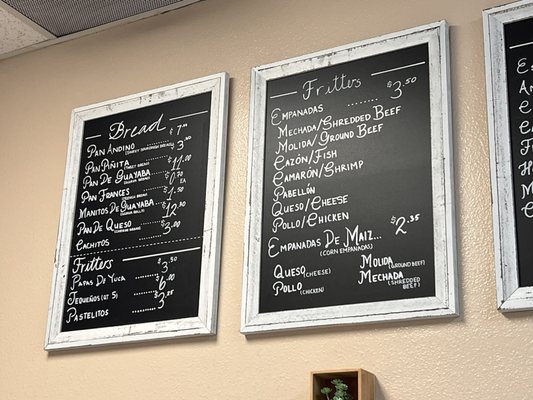 Bread
Pan Andino $7.00
(Sweet Sourdough Bread)
Pan Piñita $3.90
(Sweet Bread)
Pan De Guayaba $11.00
(Guava Bread)
Pan Frances $0.70 EA
(French Bread)
Manitos De Guayaba $1.50
(Guava Roll)
Pan De Queso $12.00
(Cheese Bread)
Cachitos $3.00
Fritters
Papas De Yuca $3.50
Tequeños (at 5) $6.00
Pastelitos $3.25
Fritters
Empanadas $3.50
Mechada/Shredded Beef
Molida/Ground Beef
Cazón/Fish
Camarón/Shrimp
Pabellón
Queso/Cheese
Pollo/Chicken
Empanadas De Maiz... $2.35
(Corn Empanadas)
Queso (Cheese) Molida (Ground Beef)
Pollo (Chicken) Mechada (Shredded Beef)